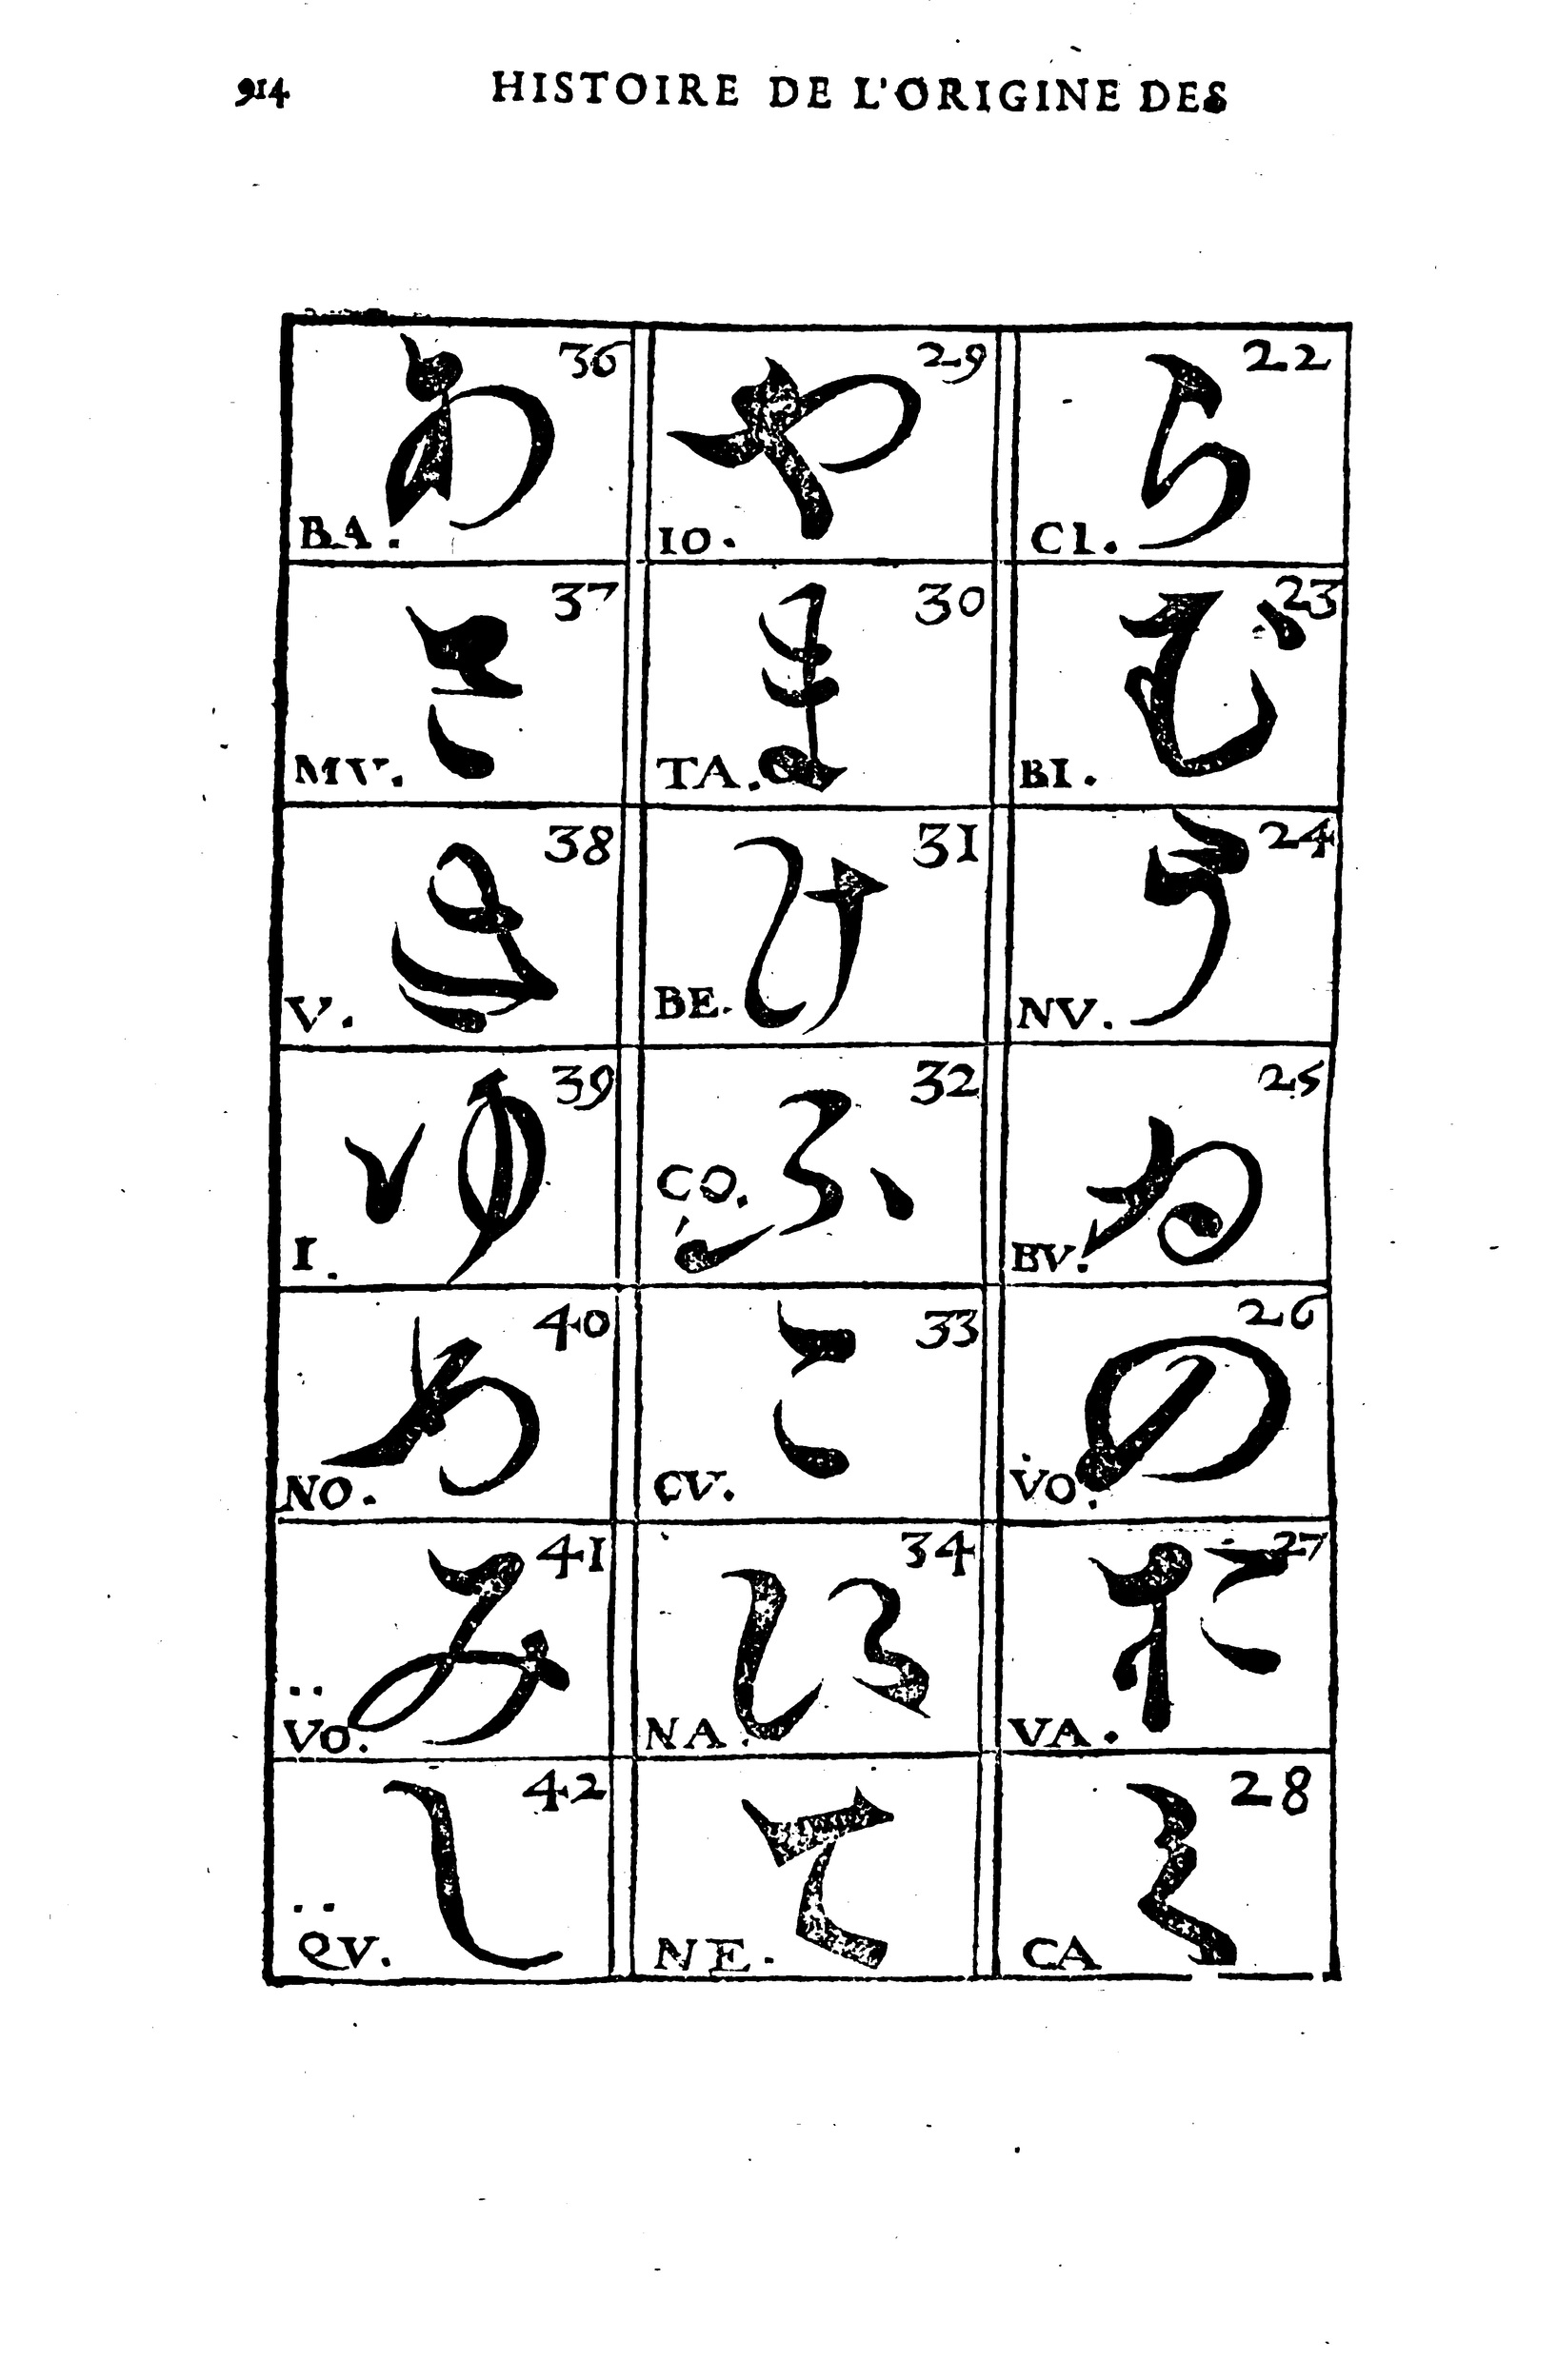 914 HISTOIRE DE L'ORIGINE DES
36 あ BA.
29 や IO.
22 ら CI.
37 さ MV.
30 ま TA.
23 む BI.
38 き V.
31 け BE.
24 う NV.
39 ゆ I.
32 ふ CO.
25 ゐ BV.
40 め NO.
33 こ CV.
26 の VO.
41 み VO.
34 𛀁 NA.
27 お VA.
42 し QV.
て NE.
28 く CA